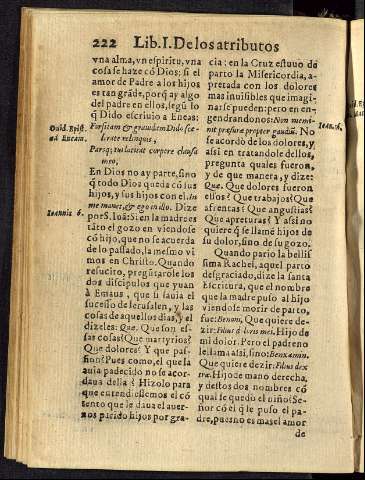 222 Lib. I. De los atributos
vna alma, vn espiritu, vna
cosa se haze cõ Dios: si el
amor de Padre a los hijos
es tan grãde, porq̃ ay algo
del padre en ellos, segũ lo
q̃ Dido escriuio a Eneas:
Ouid. Epist.
ad Eneam.
Forsitam & grauidem Dido sce-
lerate relinquis,
Parsq; tui lateat corpore clausa
meo,
En Dios no ay parte, sino
q̃ todo Dios queda cõ sus
hijos, y sus hijos con el. In
me manet, & ego in illo. Dize
Ioannis 6.
por S. Iuã: Si en la madre es
tãto el gozo en viendose
cõ hijo, que no se acuerda
de lo passado, la mesmo vi
mos en Christo. Quando
resucito, preguntarole los
dos discipulos que yuan
à Emaus, que si sauia el
sucesso de Ierusalen, y las
cosas de aquellos dias, y el
dizeles: Quæ. Que son es-
sas cosas? Que martyrios?
Que dolores? Y que pas-
sion? Pues como, el que la
auia padecido no se acor-
daua della? Hizolo para
que entendiessemos el cõ
tento que le daua el auer-
nos parido hijos por gra-
cia: en la Cruz estuuo de
parto la Misericordia, a-
pretada con los dolores
mas inuisibles que imagi-
narse pueden: pero en en-
gendrandonos: Non memi-
nit præsuræ propter gaudiũ. No
Ioan. 16.
se acordò de los dolores, y
assi en tratandole dellos,
pregunta quales fueron,
y de que manera, y dize:
Quæ. Que dolores fueron
essos? Que trabajos? Que
afrentas? Que angustias?
Que apreturas? Y assi no
quiere q̃ se llamẽ hijos de
su dolor, sino de su gozo.
Quando pario la bellis
sima Rachel, aquel parto
desgraciado, dize la santa
Escritura, que el nombre
que la madre puso al hijo
viendole morir de parto,
fue: Benoni, Que quiere de-
zir: Filius doloris mei. Hijo de
mi dolor. Pero el padre no
le llama assi, sino: Beniamin.
Que quiere dezir: Filius dex
træ. Hijo de mano derecha,
y destos dos nombres cõ
qual se quedo el niño? Se-
ñor cõ el q̃ le puso el pa-
dre, pues no es mas el amor
de